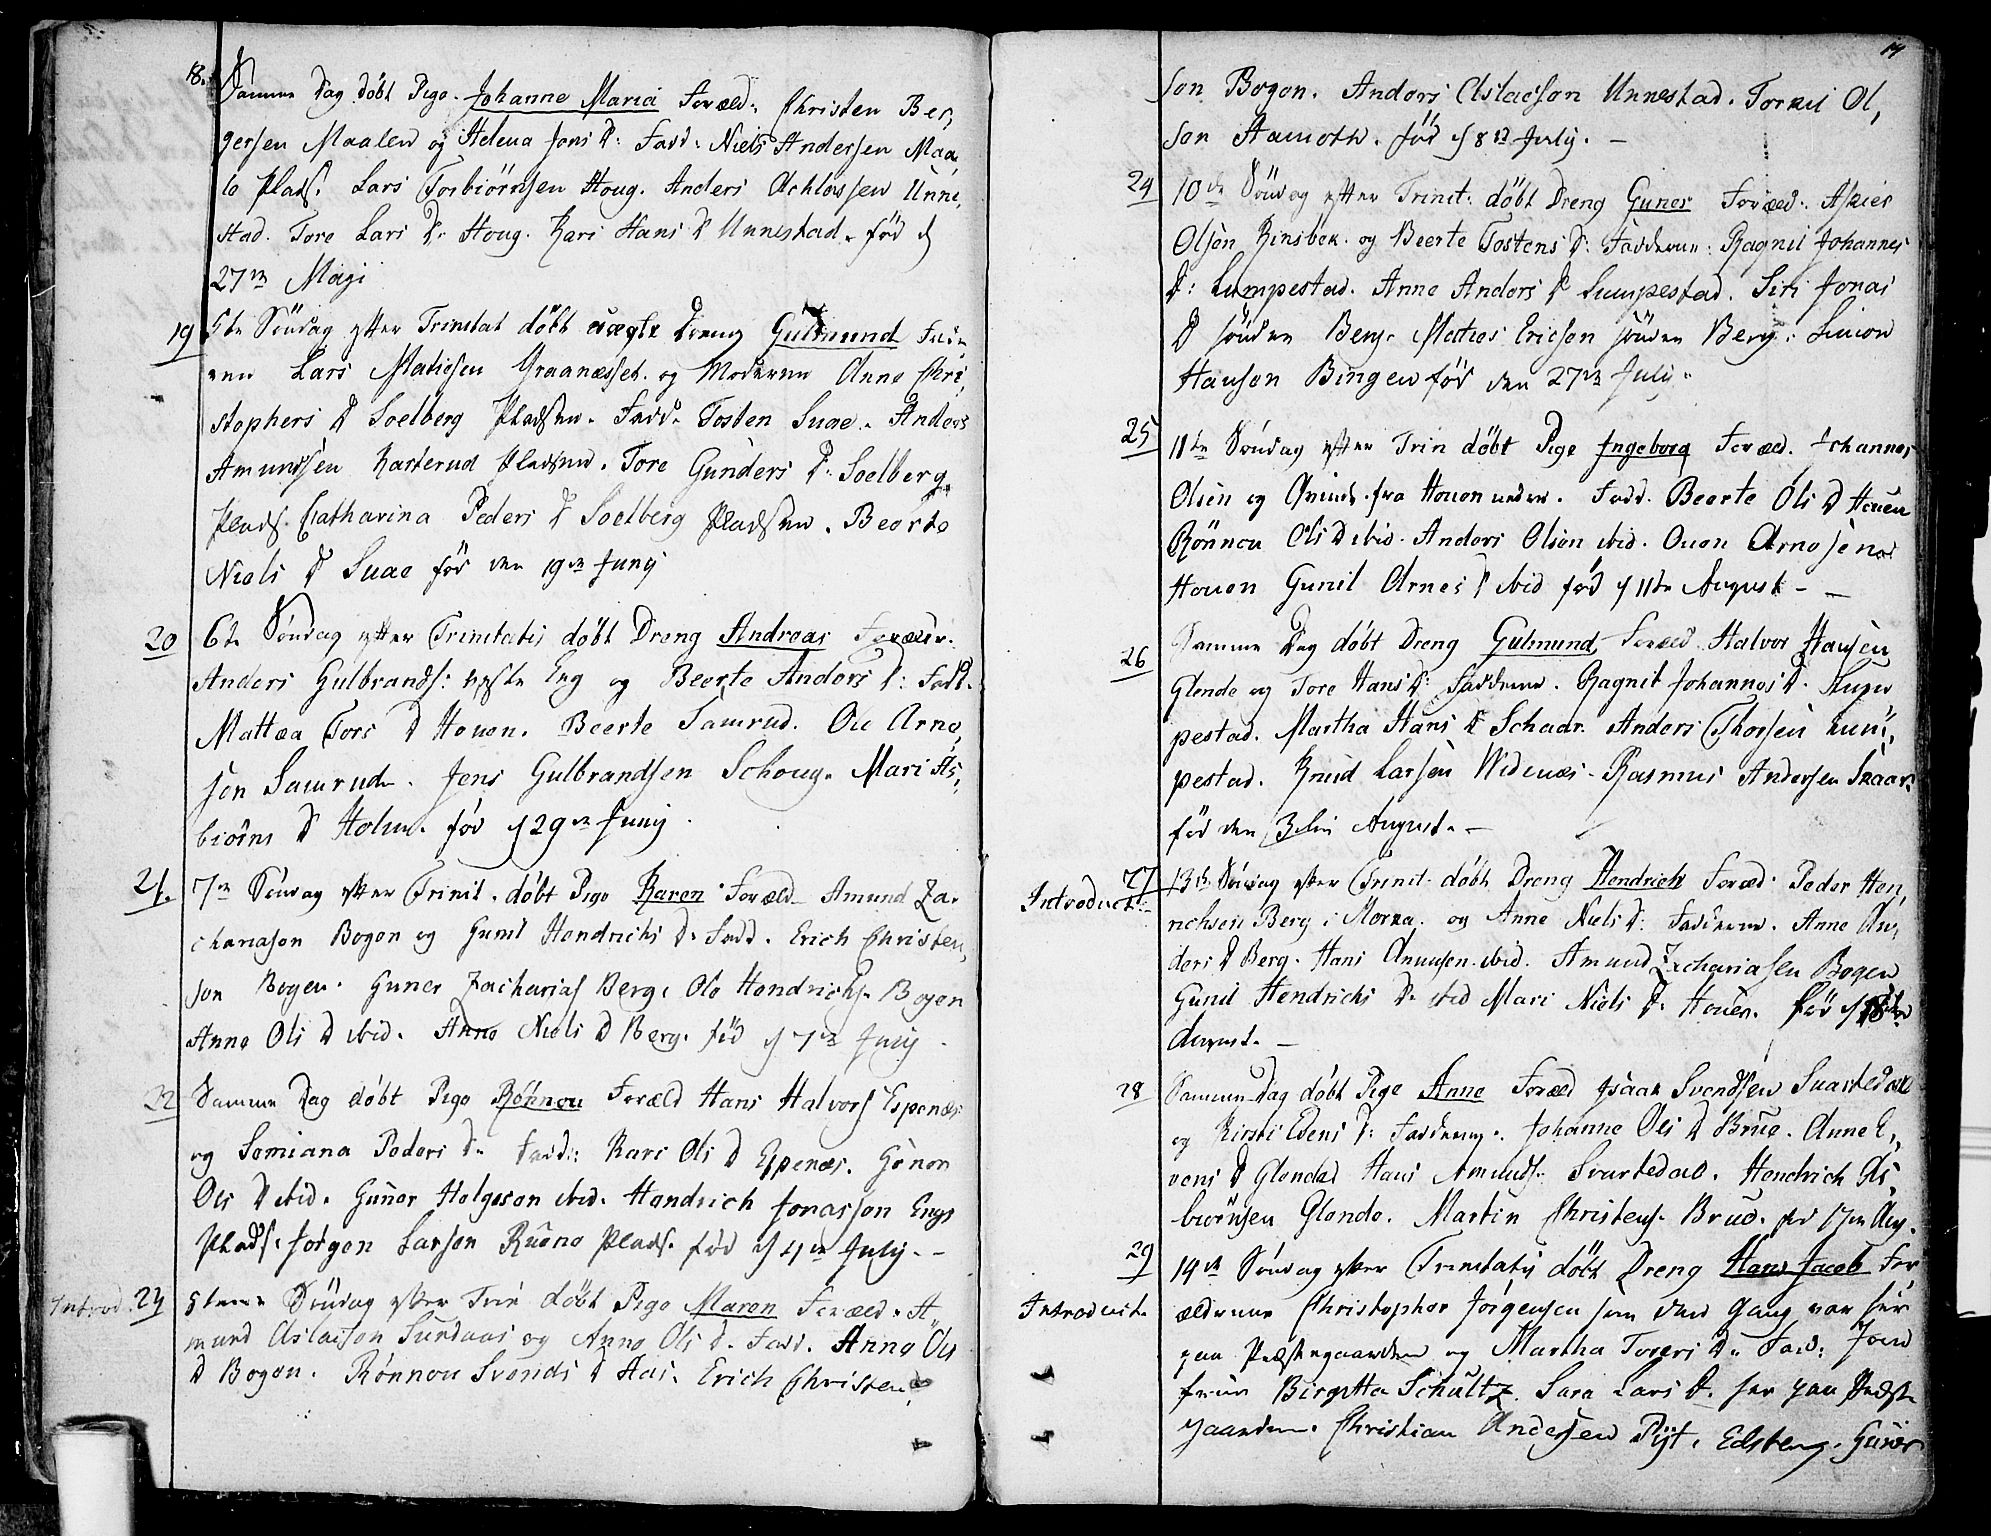 18. Samme Dag döbt Pige. Johanne Maria Foræld: Christen Ber,
gersen Maalen og Helena Jens D: Fadd: Niels Andersen Maa
le Plads. Lars Torbiörnsen Houg. Anders Achlessen Unne,
stad. Tore Lars D: Houg. Kari Hans D Unnestad. fød d
27de Maji
19 5te Söndag efter Trinitat döbt uægte Dreng Gulmund Fade
ren Lars Matiesen Graanæsset. og Moderen Anne Chri,
stophers D Soelberg Pladsen. Fadd. Tosten Suae. Anders
Amundsen Kasterud Pladsen. Tore Gunders D: Soelberg
Plads. Catharina Peders D Soelberg Pladsen. Beerte
Niels D Suae fød den 19de Junij
20 6te Söndag efter Trinitatis döbt Dreng Andreas Forældr.
Anders Gulbrands: Eng og Beerte Anders D: Fadd.
Mattea Tors D Houen. Beerte Samrud. Ole Arne,
sen Samrud. Jens Gulbrandsen Schoug. Mari As,
biörns D Holm. fød d 29de Junij.
21. 7de Söndag efter Trinit. döbt Pige Karen Foræld. Amund Za.
chariasen Bogen og Gunil Hendrichs D. Fadd. Erich Christen,
sen Bogen. Guner Zacharias Berg. Ole Hendrichs. Bogen
Anne Ols D ibid. Anne Niels D Berg. fød d 7de Julij.
22 Samme Dag döbt Pige Rönnou Foræld Hans Halvors Espenæs
og Semiana Peders D. Fadd: Kari Ols D Espenæs. Gönon
Ols D ibid. Guner Helgesen ibid. Hendrich Jonassen Engs
Plads. Jörgen Larsen Ruene Plads. fød d 4de Julij. -
Introd. 23 Söndag efter Trin döbt Pige Maren Foræld. A,
mund Aslacsen Surdaas og Anne Ols D. Fadd. Anne Ols
D Bogen. Rönnou Svends D Aas. Erich Christen,
19
sen Bogen. Anders Aslacsen Unnestad. Torkil Ol,
sen Hamoth. fød d 8de Julij. -
24 10de Söndag efter Trinit: döbt Dreng Guner Foræld. Askier
Olsen Rinsbek. og Beerte Tostens D: Fadderne: Ragnil Johannes
D: Lumpestad. Anne Anders D Lumpestad. Siri Jonas
D söndre Berg. Maties Ericsen söndre Berg: Simon
Hansen Bingen fød den 27de Julij.
25 11te Söndag efter Trin döbt Pige Ingeborg Foræld. Johannes
Olsen og fra Houen Fadd. Beerte Ols D Houen
Rönnou Ols D ibid. Anders Olsen ibid. Ouen Arnesen
Houen Gunil Arnes D ibid fød d 11te August - -
26 Samme Dag döbt Dreng Gulmund Foræld Halvor Hansen
Glende og Tore Hans D: Fadderne. Ragnil Johannes D. Lum
pestad. Martha Hans D Schaar. Anders Thorsen Lum,
pestad. Knud Larsen Widenæs. Rasmus Andersen Skaar.
fød den August. -
Introduct: 27 13de Söndag efter Trinit. döbt Dreng Hendrich Foræld. Peder Hen,
richsen Berg i Morka. og Anne Niels D: Fadderne. Anne An,
ders D Berg. Hans Amunsen ibid. Amund Zachariasen Bogen
Gunil Hendrichs D. ibid Mari Niels D: Houen. fød d
August. -
28 Samme Dag döbt Pige Anne Foræld Isaak Svendsen Suartedahl
og Kirsti Edens D: Fadderne. Johanne Ols D Brue. Anne E,
vens D Glende Hans Amunds. Svartedal. Hendrich As,
biörnsen Glende. Martin Christens. Brue. fød 17de Aug.
29 14de Söndag efter Trinitatis döbt Dreng Hans Jacob For
Introduct. ældrene Christopher Jörgensen som den Gang var her
paa Præstegaarden og Martha Torers D. Fad: Jom
frue Birgitta Schultz. Sara Lars D. her paa Præste
gaarden. Christian Andersen Edsberg. Guner